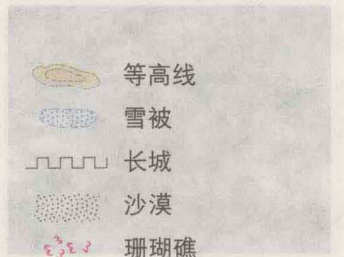 等高线
雪被
长城
沙漠
珊瑚礁